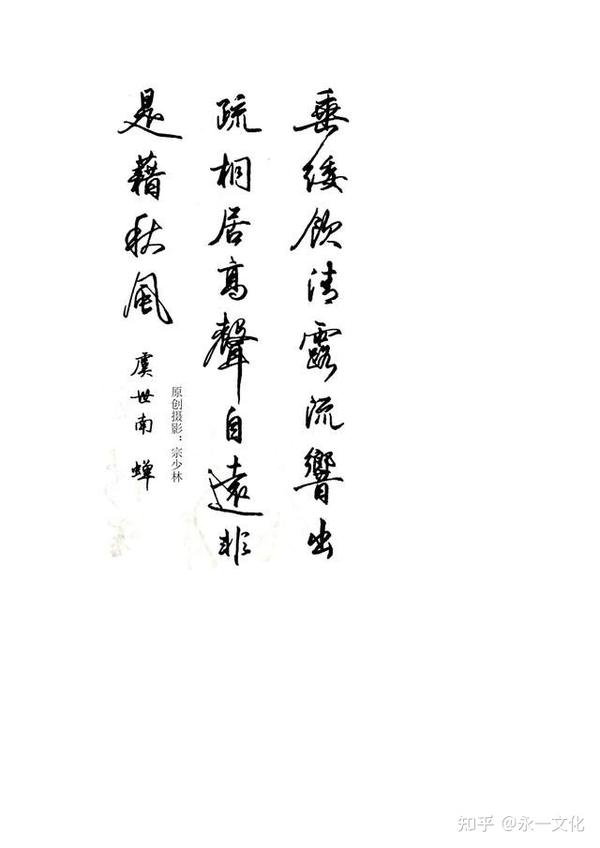 垂緌飲清露流響出
疏桐居高聲自遠非
是藉秋風
虞世南 蝉
原创摄影：宗少林
知乎 @永一文化